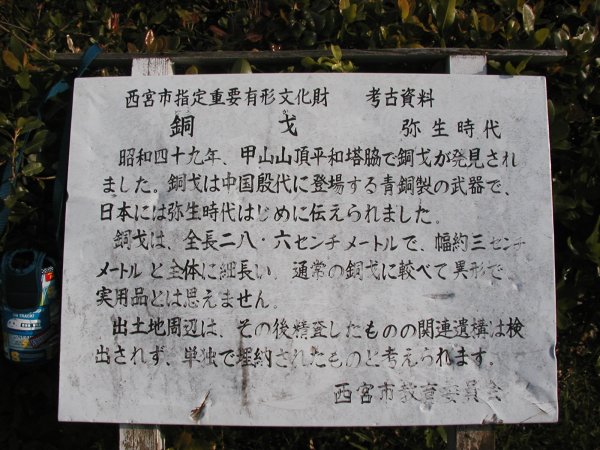 西宮市指定重要有形文化財　考古資料
銅戈　弥生時代
昭和四十九年、甲山山頂平和塔脇で銅戈が発見され
ました。銅戈は中国殷代に登場する青銅製の武器で、
日本には弥生時代はじめに伝えられました。
銅戈は、全長二八・六センチメートルで、幅約三センチ
メートルと全体に細長い、通常の銅戈に較べて異形で
実用品とは思えません。
出土地周辺は、その後精査したものの関連遺構は検
出されず、単独で埋納されたものと考えられます。
西宮市教育委員会